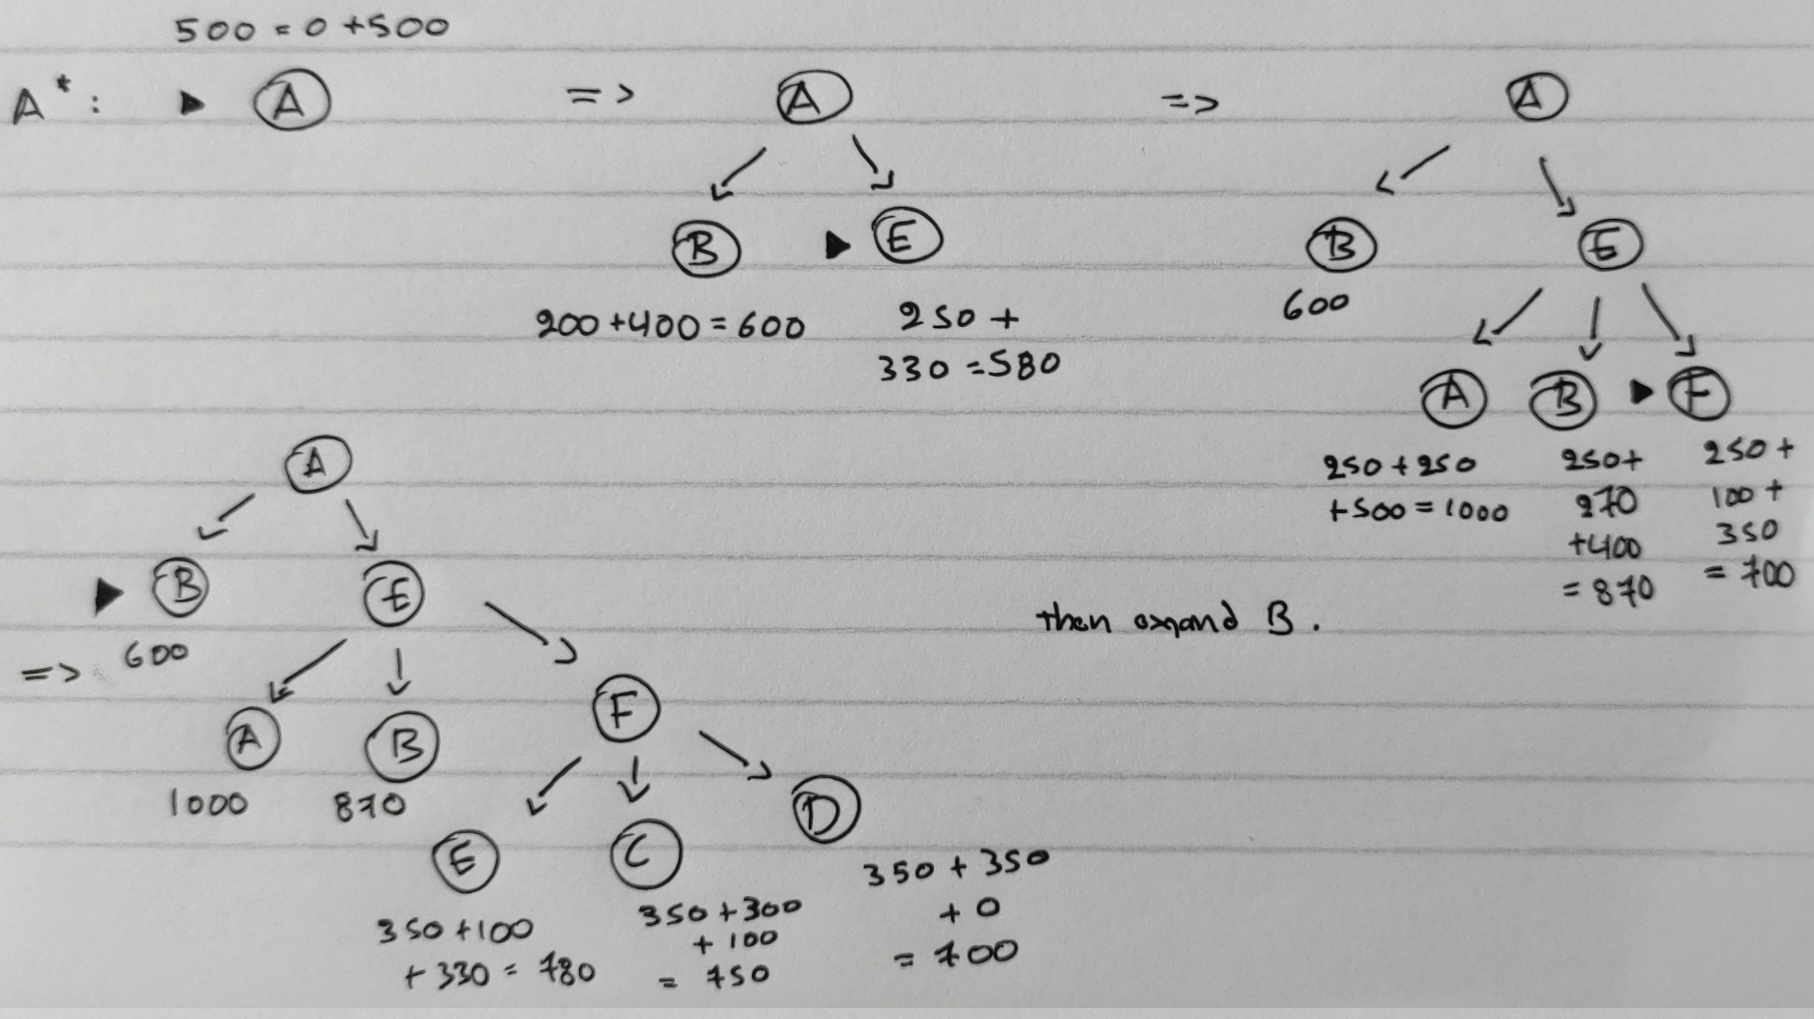 500 = 0 + 500
A* : ▶ A => A => A
B ▶ E
200 + 400 = 600
250 +
330 = 580
B E
600
A B ▶ F
250 + 250
+ 500 = 1000
250 +
270
+ 400
= 870
250 +
100 +
350
= 700
A
▶ B E
=> 600
A B F
1000 870
E C D
350 + 100
+ 330 = 780
350 + 300
+ 100
= 750
350 + 350
+ 0
= 700
then expand B .